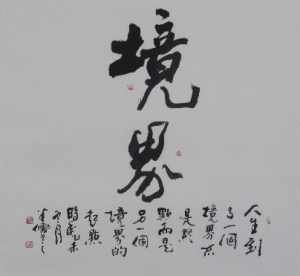 境
界
人生到
了一個
境界不
是終
點而是
另一個
境界的
起點
乙未